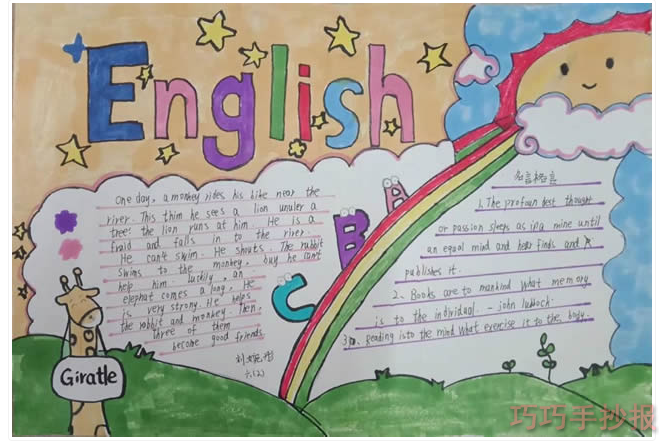 English
One day, a monkey rides his bike near the
river. This thim he sees a lion unuler a
tree. the lion runs at him. He is a
fraid and falls in to the river.
He can't swim. He shouts. The rabbit
swims to the monkey, buy he can't
help him. luckily, an
elephat comes a long, He
is very strong. He helps
the rabbit and monkey. Then,
three of them
become good friends.
六(2)
A
B
C
名言格言
1. The profoun best thought
or passion sleeps as in a mine until
an equal mind and finds and
publishes it.
2. Books are to mankind what memory
is to the individual. - john lubbock.
3. Reading is to the mind what exercise it to the boyy.
Giratle
巧巧手抄报